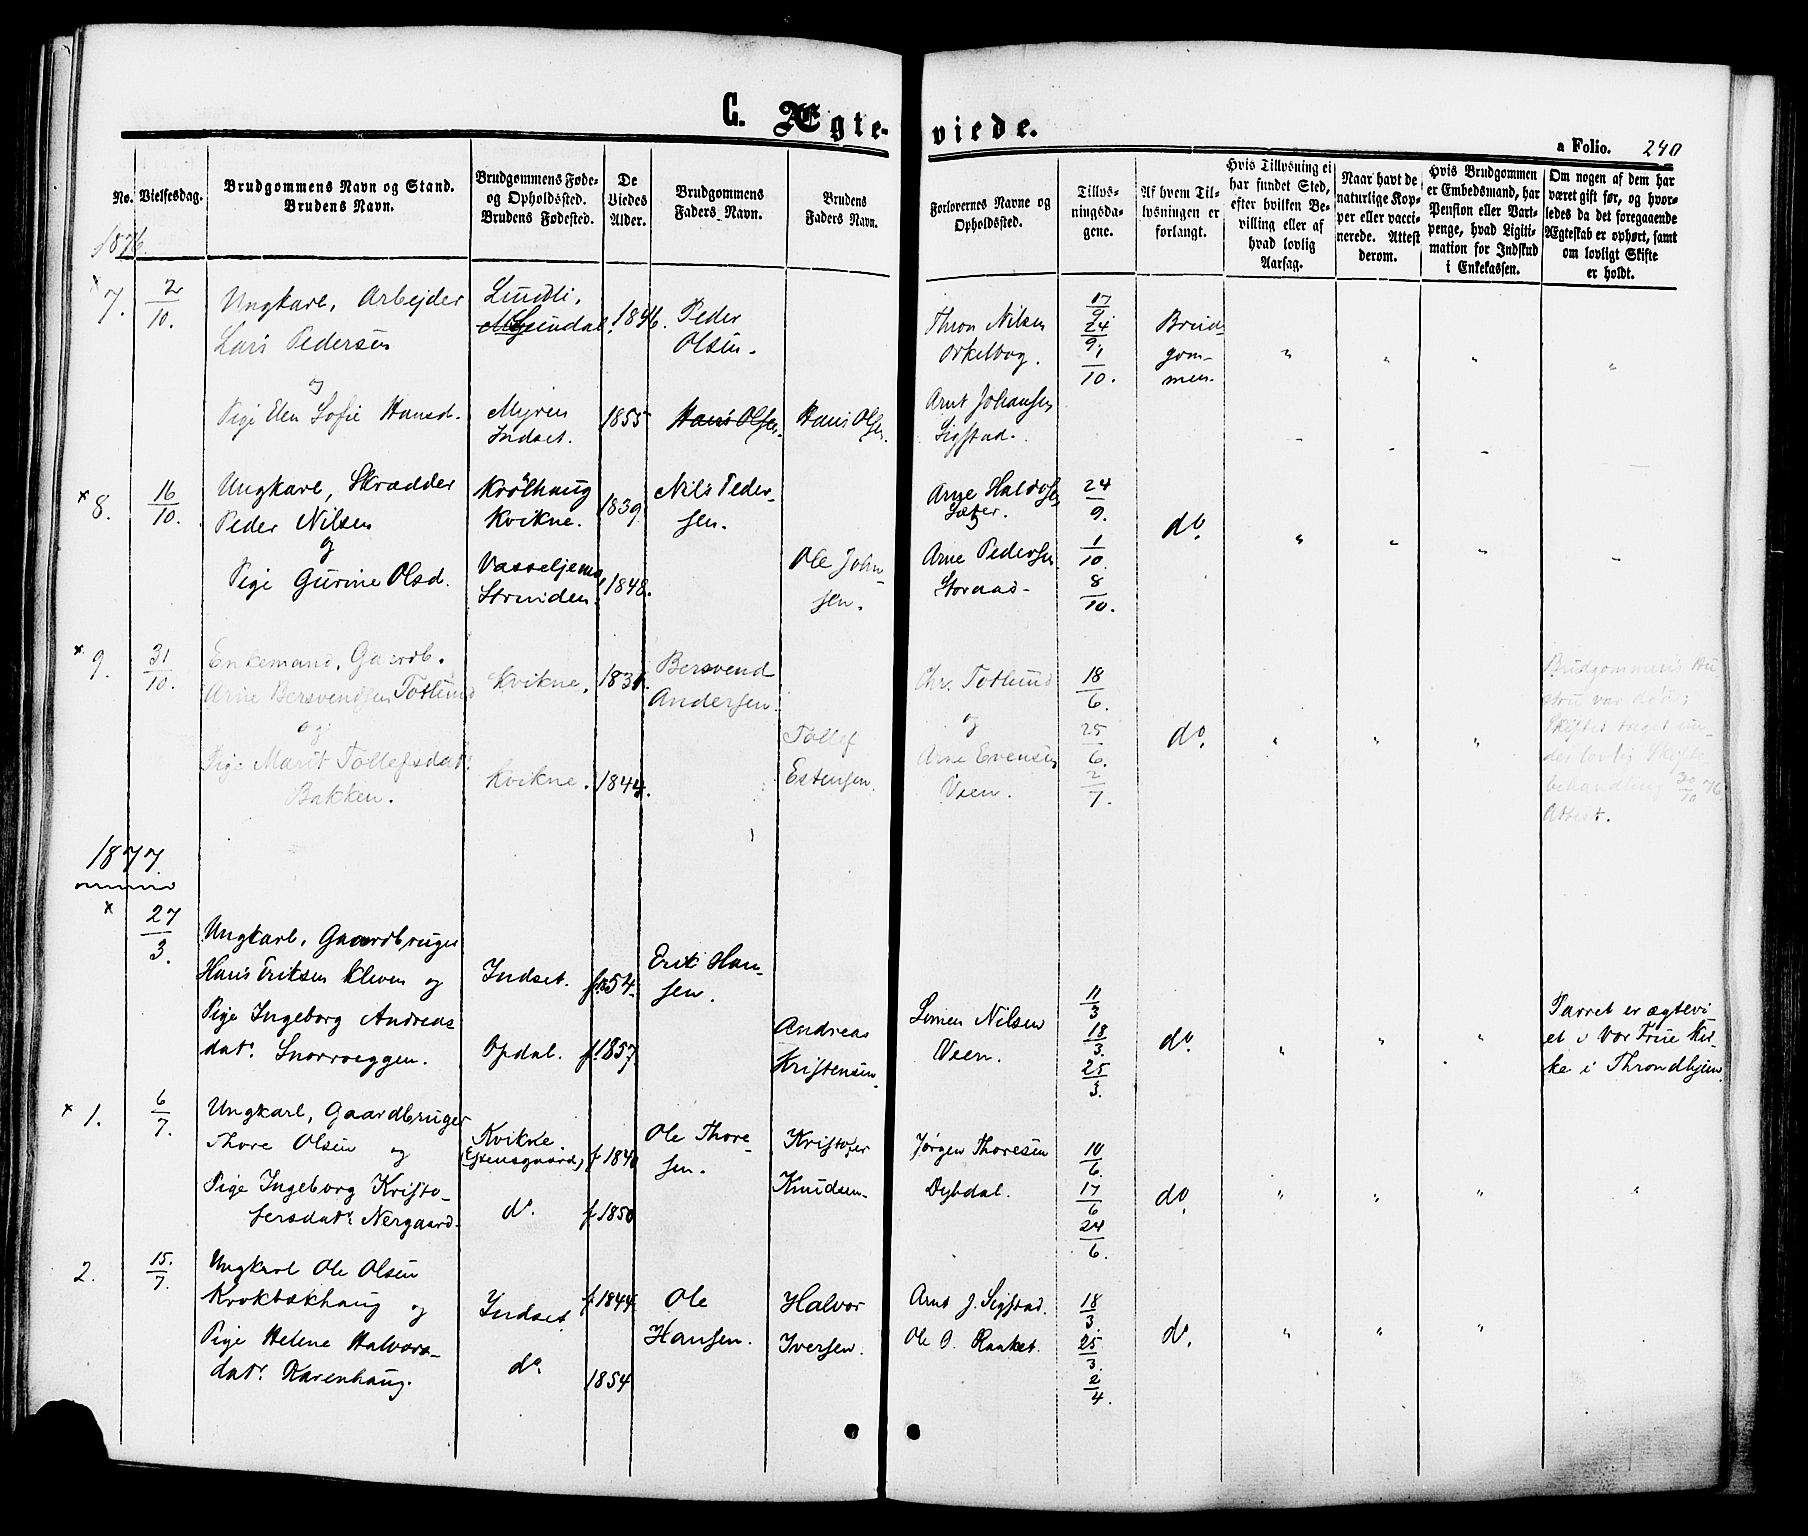 C. Ægte-
viede.
a Folio. 240
No.
Vielsesdag.
Brudgommens Navn og Stand.
Brudens Navn.
Brudgommens Føde-
og Opholdssted.
Brudens Fødested.
De
Viedes
Alder.
Brudgommens
Faders Navn.
Brudens
Faders Navn.
Forlovernes Navne og
Opholdssted.
Tillys-
ningsda-
gene.
Af hvem Til-
lysningen er
forlangt.
Hvis Tillysning ei
har fundet Sted,
efter hvilken Be-
villing eller af
hvad lovlig
Aarsag.
Naar havt de
naturlige Kop-
per eller vacci-
nerede. Attest
derom.
Hvis Brudgommen
er Embedsmand, har
Pension eller Vart-
penge, hvad Ligiti-
mation for Indskud
i Enkekassen.
Om nogen af dem har
været gift før, og hvor-
ledes da det foregaaende
Ægteskab er ophørt, samt
om lovligt Skifte
er holdt.
1876.
x 7. 2/10.
Ungkarl, Arbejder
Lars Pedersen
og
Pige Elen Sofie Hansd.
Lundli,
Myren
Indset.
1846.
1855
Peder
Olsen.
Hans Olsen.
Hans Olsen.
Thron Nilsen
Orkelbog.
Arnt Johansen
Sigstad.
17/9
24/9.
1/10.
Brud-
gom-
men.
" " " "
x 8. 16/10.
Ungkarl, Skrædder
Peder Nilsen
og
Pige Gurine Olsd.
Krølhaug
Kvikne.
Vasseljemo
Strinden.
1839
1848.
Nils Peder-
sen.
Ole John-
sen.
Arne Haldosen
Sæter.
Arne Pedersen
Storaas
24/9.
1/10.
8/10.
do.
" " " "
x 9. 31/10.
Enkemand, Gaardb.
Arne Bersvendsen Totlund
og
Pige Marit Tollefsdatr.
Bakken.
Kvikne.
Kvikne.
1831.
1844.
Bersvend
Andersen.
Tollef
Estensen.
Chr. Totlund
og
Arne Evensen
Veen.
18/6.
25/6.
2/7.
do.
" " "
Brudgommens Hu-
stru var død;
Skiftet taget un-
der lovlig Skifte-
behandling 20/10 76.
Attest.
1877.
x 27/3.
Ungkarl, Gaardbruger
Hans Eriksen Kleven og
Pige Ingeborg Andreas
datr. Snorroeggen.
Indset.
Opdal.
f.1854.
f.1857.
Erik Han-
sen.
Andreas
Kristensen.
Simen Nilsen
Veen.
11/3
18/3.
25/3.
do.
" " "
Parret er ægtevi-
et i Vor Frue Kir-
ke i Throndhjem.
x 1. 6/7.
Ungkarl, Gaardbruger
Thore Olsen og
Pige Ingeborg Kristo-
fersdatr. Nergaard.
Kvikne.
(Estensgaard)
do.
f 1840
f 1850
Ole Thore-
sen.
Kristofer
Knudsen.
Jørgen Thoresen
Dybdal.
10/6.
17/6
24/6.
do.
" " " "
2. 15./7.
Ungkarl Ole Olsen
Krokbækhaug og
Pige Helene Halvors-
datr. Karenhaug.
Indset.
do.
f 1844.
1854
Ole
Hansen.
Halvor
Iversen.
Arnt J. Sigstad.
Ole O. Raaket.
18/3.
25/3.
2/4.
do.
" " "